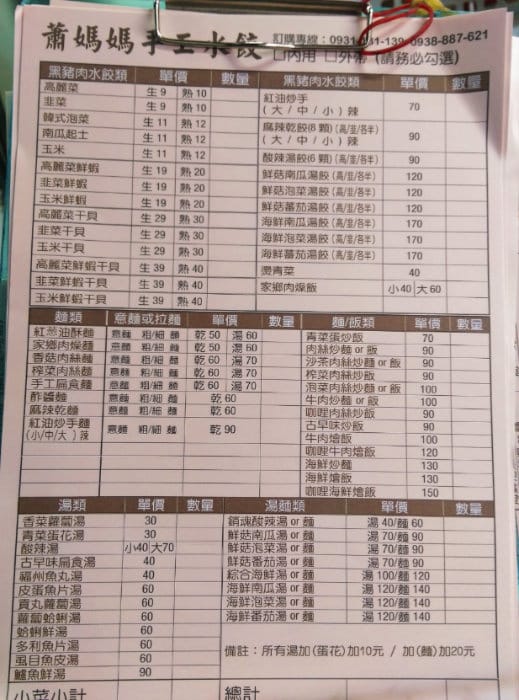 蕭媽媽手工水餃 訂購專線：0931- 41-139 0938-887-621
□內用 □外帶 (請務必勾選)
黑豬肉水餃類 單價 數量
高麗菜 生 9 熟 10
韭菜 生 9 熟 10
韓式泡菜 生 11 熟 12
南瓜起士 生 11 熟 12
玉米 生 11 熟 12
高麗菜鮮蝦 生 19 熟 20
韭菜鮮蝦 生 19 熟 20
玉米鮮蝦 生 19 熟 20
高麗菜干貝 生 29 熟 30
韭菜干貝 生 29 熟 30
玉米干貝 生 29 熟 30
高麗菜鮮蝦干貝 生 39 熟 40
韭菜鮮蝦干貝 生 39 熟 40
玉米鮮蝦干貝 生 39 熟 40
黑豬肉水餃類 單價 數量
紅油炒手
(大/中/小) 辣 70
麻辣乾餃(8 顆) (高/韭/各半)
(大/中/小) 辣 90
酸辣湯餃(6 顆) (高/韭/各半) 90
鮮菇南瓜湯餃 (高/韭/各半) 120
鮮菇泡菜湯餃 (高/韭/各半) 120
鮮菇蕃茄湯餃 (高/韭/各半) 120
海鮮南瓜湯餃 (高/韭/各半) 170
海鮮泡菜湯餃 (高/韭/各半) 170
海鮮蕃茄湯餃 (高/韭/各半) 170
燙青菜 40
家鄉肉燥飯 小 40 大 60
麵類 意麵 或拉麵 單價 數量
紅蔥油酥麵 意麵 粗/細 麵 乾 50 湯 60
家鄉肉燥麵 意麵 粗/細 麵 乾 50 湯 60
香菇肉絲麵 意麵 粗/細 麵 乾 60 湯 70
榨菜肉絲麵 意麵 粗/細 麵 乾 60 湯 70
手工扁食麵 意麵 粗/細 麵 乾 60 湯 70
酢醬麵 意麵 粗/細 麵 乾 60
麻辣乾麵 意麵 粗/細 麵 乾 60
紅油炒手麵
(小/中/大) 辣 意麵 粗/細 麵 乾 90
麵/飯類 單價 數量
青菜蛋炒飯 70
肉絲炒麵 or 飯 90
沙茶肉絲炒麵 or 飯 90
榨菜肉絲炒飯 90
泡菜肉絲炒麵 or 飯 100
牛肉炒麵 or 飯 100
咖哩肉絲炒飯 90
古早味炒飯 90
牛肉燴飯 100
咖哩牛肉燴飯 120
海鮮炒麵 130
海鮮燴飯 130
咖哩海鮮燴飯 150
湯類 單價 數量
香菜蘿蔔湯 30
青菜蛋花湯 30
酸辣湯 小40 大70
古早味扁食湯 40
福州魚丸湯 40
皮蛋魚片湯 60
貢丸蘿蔔湯 60
蘿蔔蛤蜊湯 60
蛤蜊鮮湯 60
多利魚片湯 60
虱目魚皮湯 60
鱸魚鮮湯 90
湯麵類 單價 數量
銷魂酸辣湯 or 麵 湯 40/麵 60
鮮菇南瓜湯 or 麵 湯 70/麵 90
鮮菇泡菜湯 or 麵 湯 70/麵 90
鮮菇蕃茄湯 or 麵 湯 70/麵 90
綜合海鮮湯 or 麵 湯 100/麵 120
海鮮南瓜湯 or 麵 湯 120/麵 140
海鮮泡菜湯 or 麵 湯 120/麵 140
海鮮蕃茄湯 or 麵 湯 120/麵 140
備註：所有湯加(蛋花)加10元 / 加(麵)加20元
小菜小計 總計